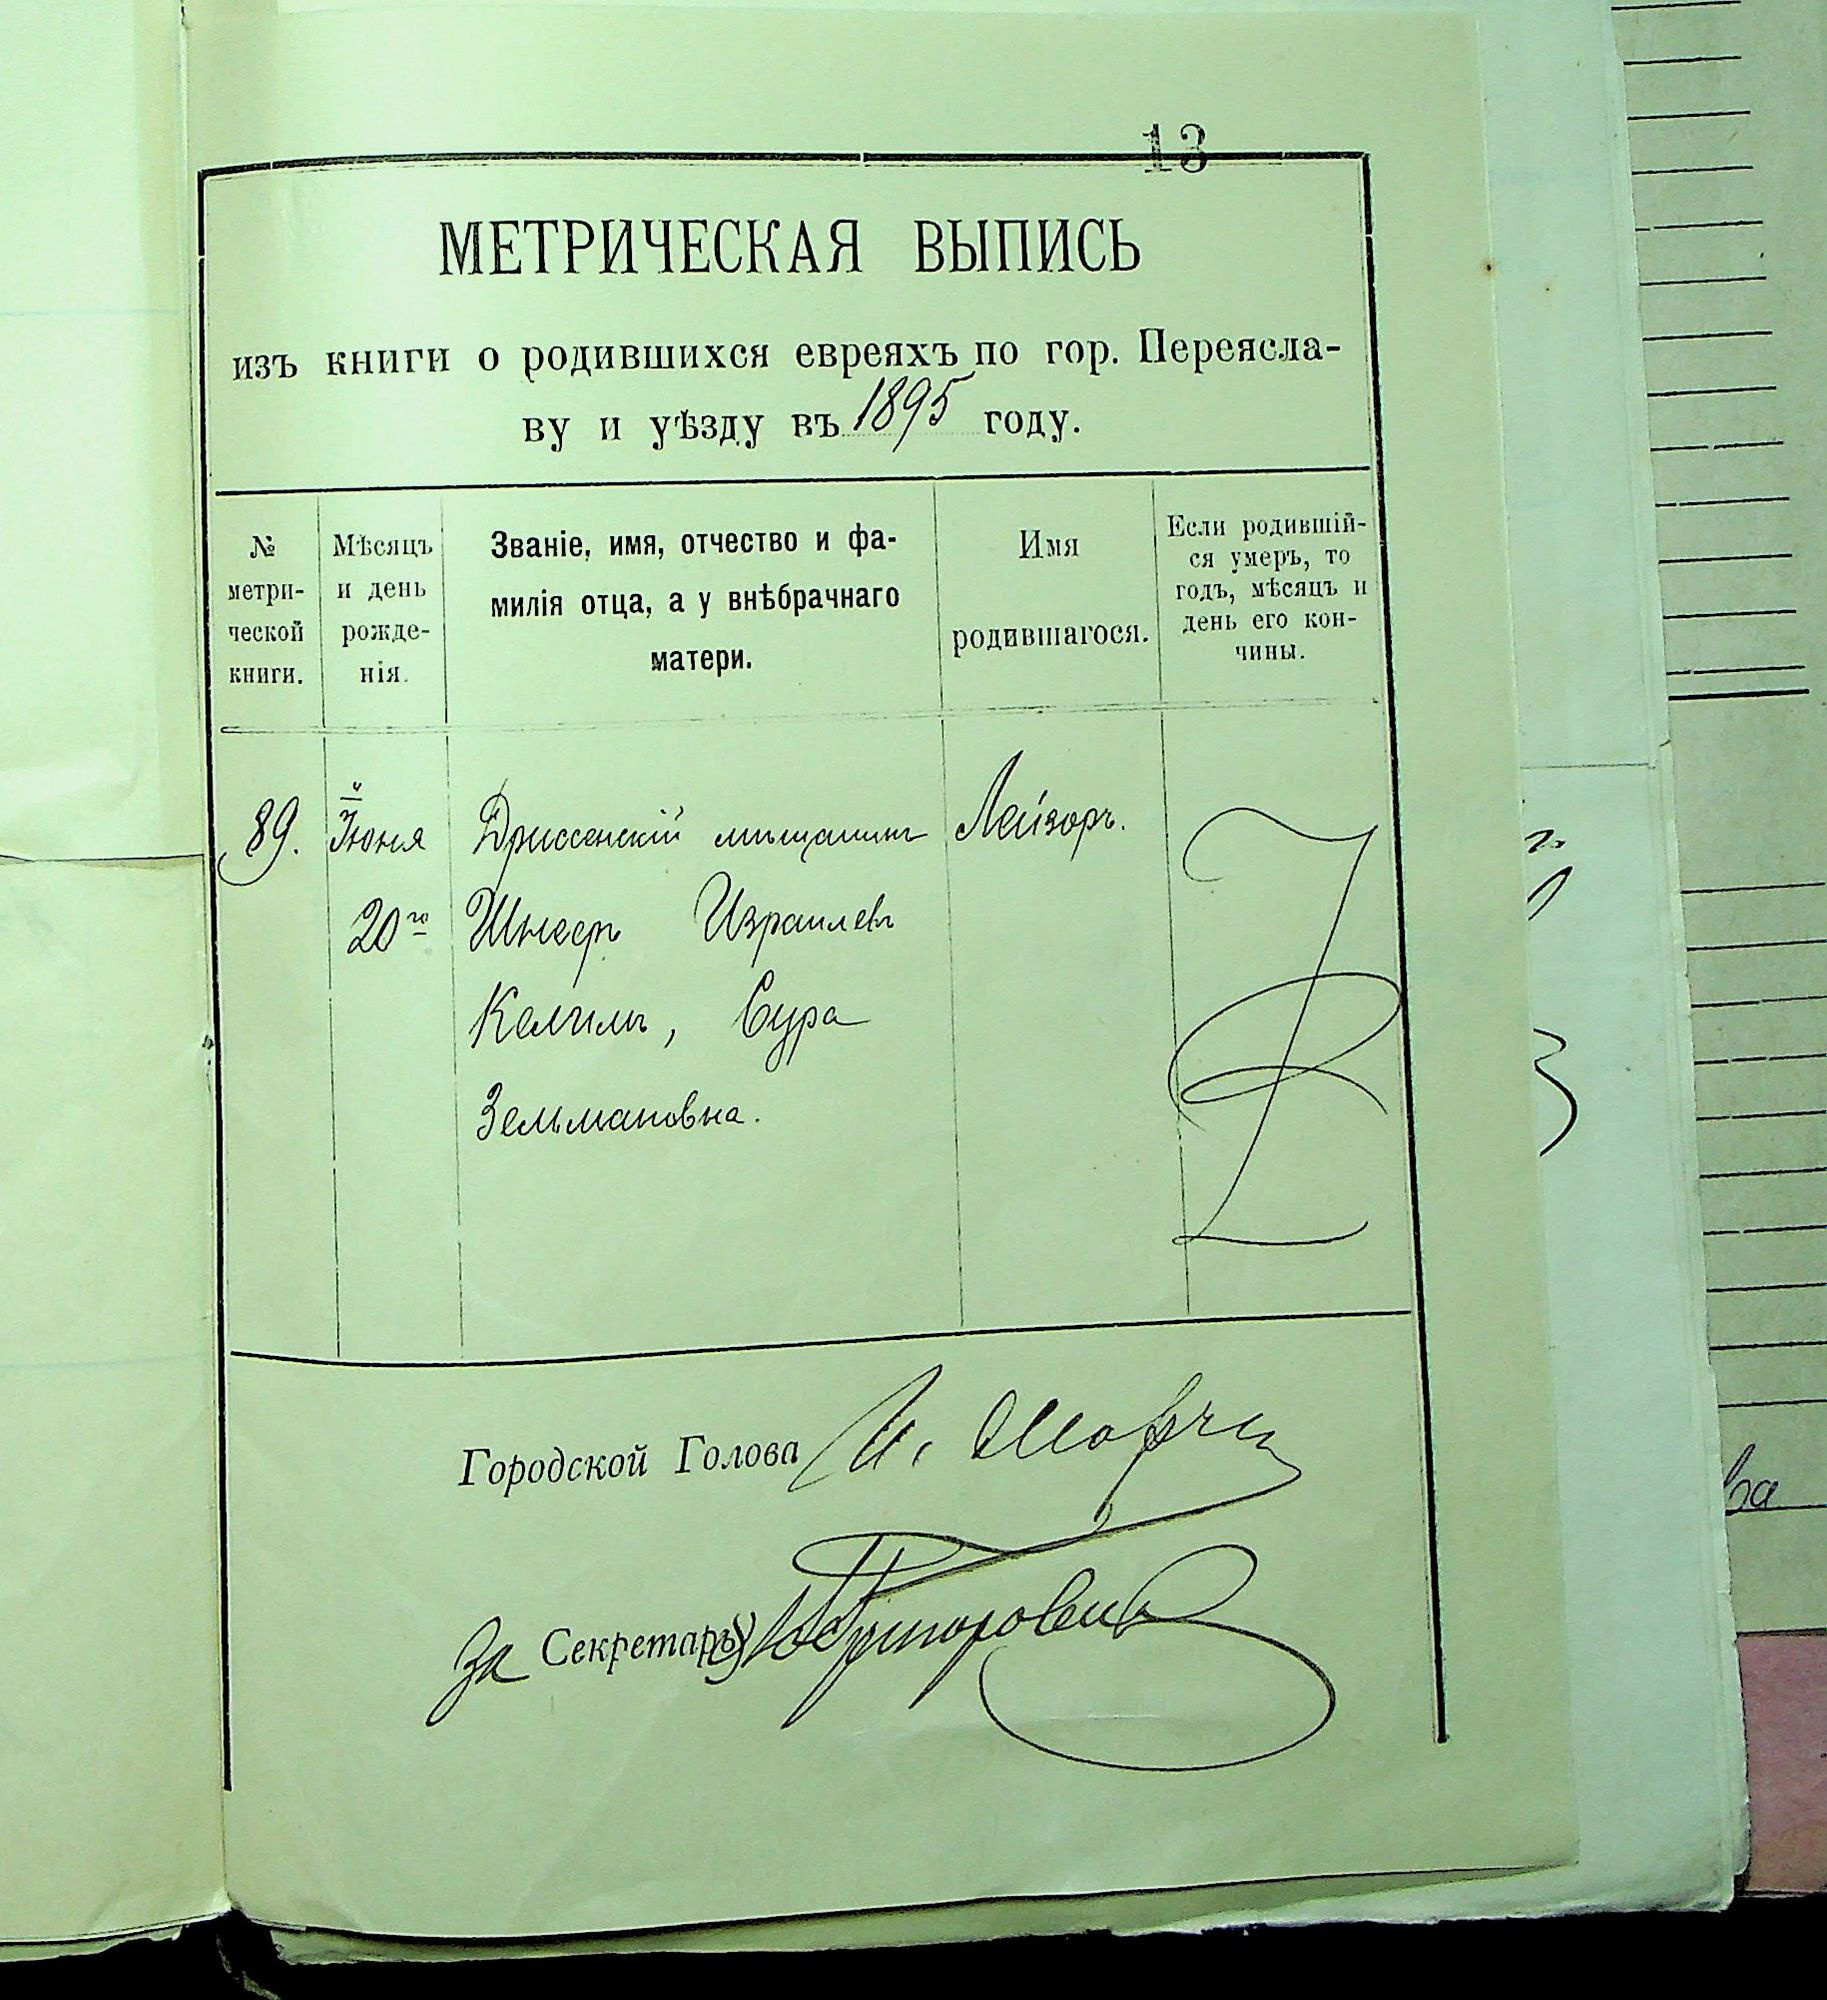 13
МЕТРИЧЕСКАЯ ВЫПИСЬ
изъ книги о родившихся евреяхъ по гор. Переясла-
ву и уѣзду въ 1895 году.
№ метри-ческой книги.
Мѣсяцъ и день рожде-нія.
Званіе, имя, отчество и фа-милія отца, а у внѣбрачнаго матери.
Имя родившагося.
Если родившій-ся умеръ, то годъ, мѣсяцъ и день его кон-чины.
89. Іюня Дриссенскій мѣщанинъ Лейзоръ.
20го Шнееръ Израилевъ
Келимъ, Сура
Зельмановна.
Городской Голова И.
За Секретаря
ва